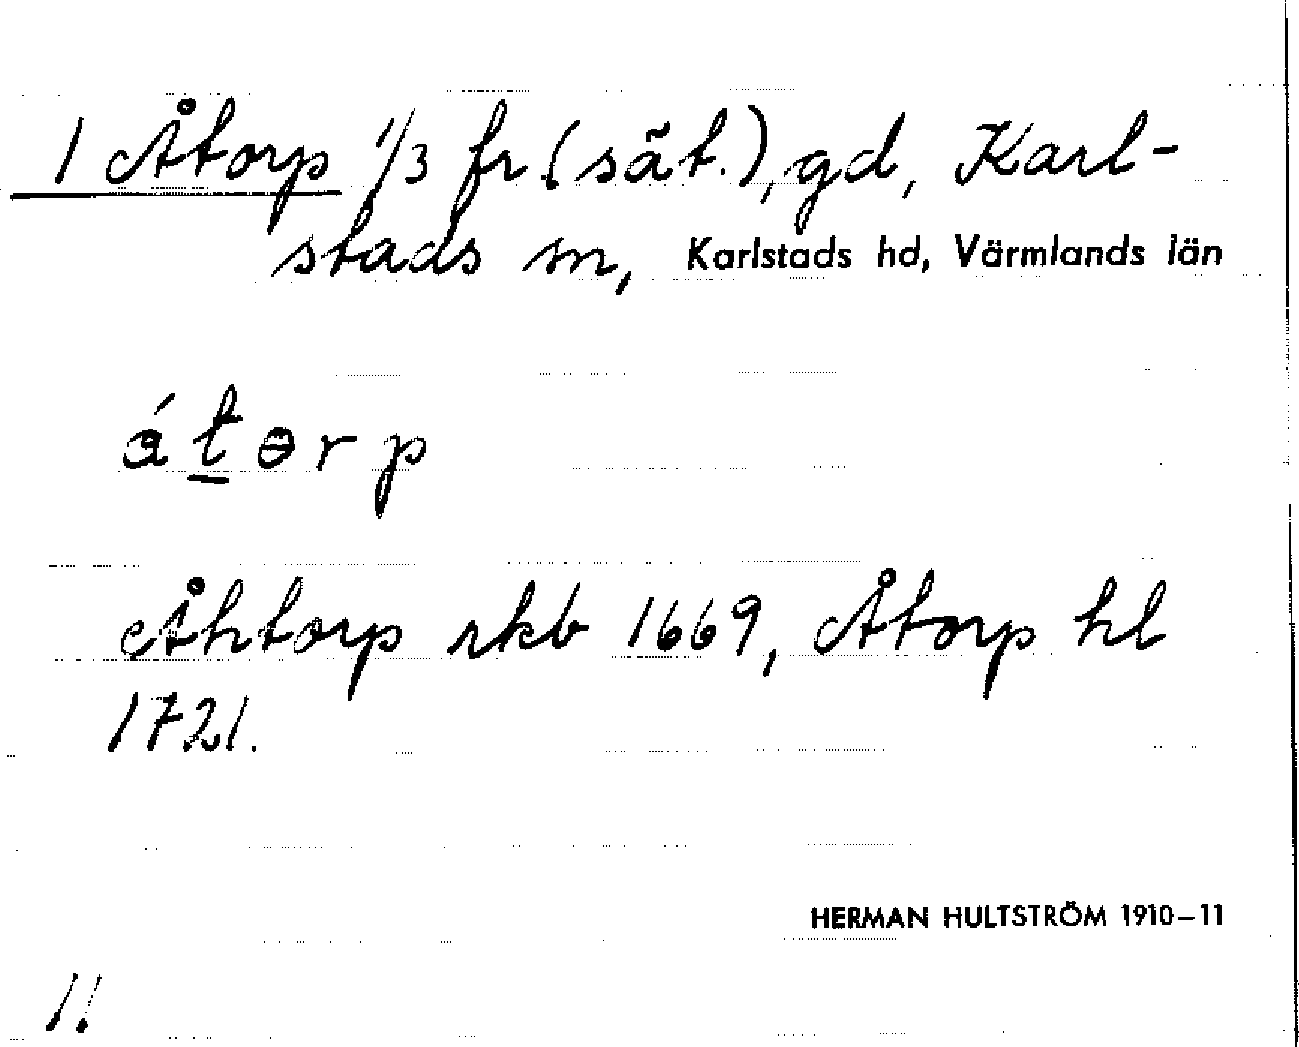 1 Åtorp 1/3 fr (sät.), gd, Karl-
stads sn, Karlstads hd, Värmlands län
átɵrp
Åhtorp rkb 1669, Åtorp hl
1721.
HERMAN HULTSTRÖM 1910–11